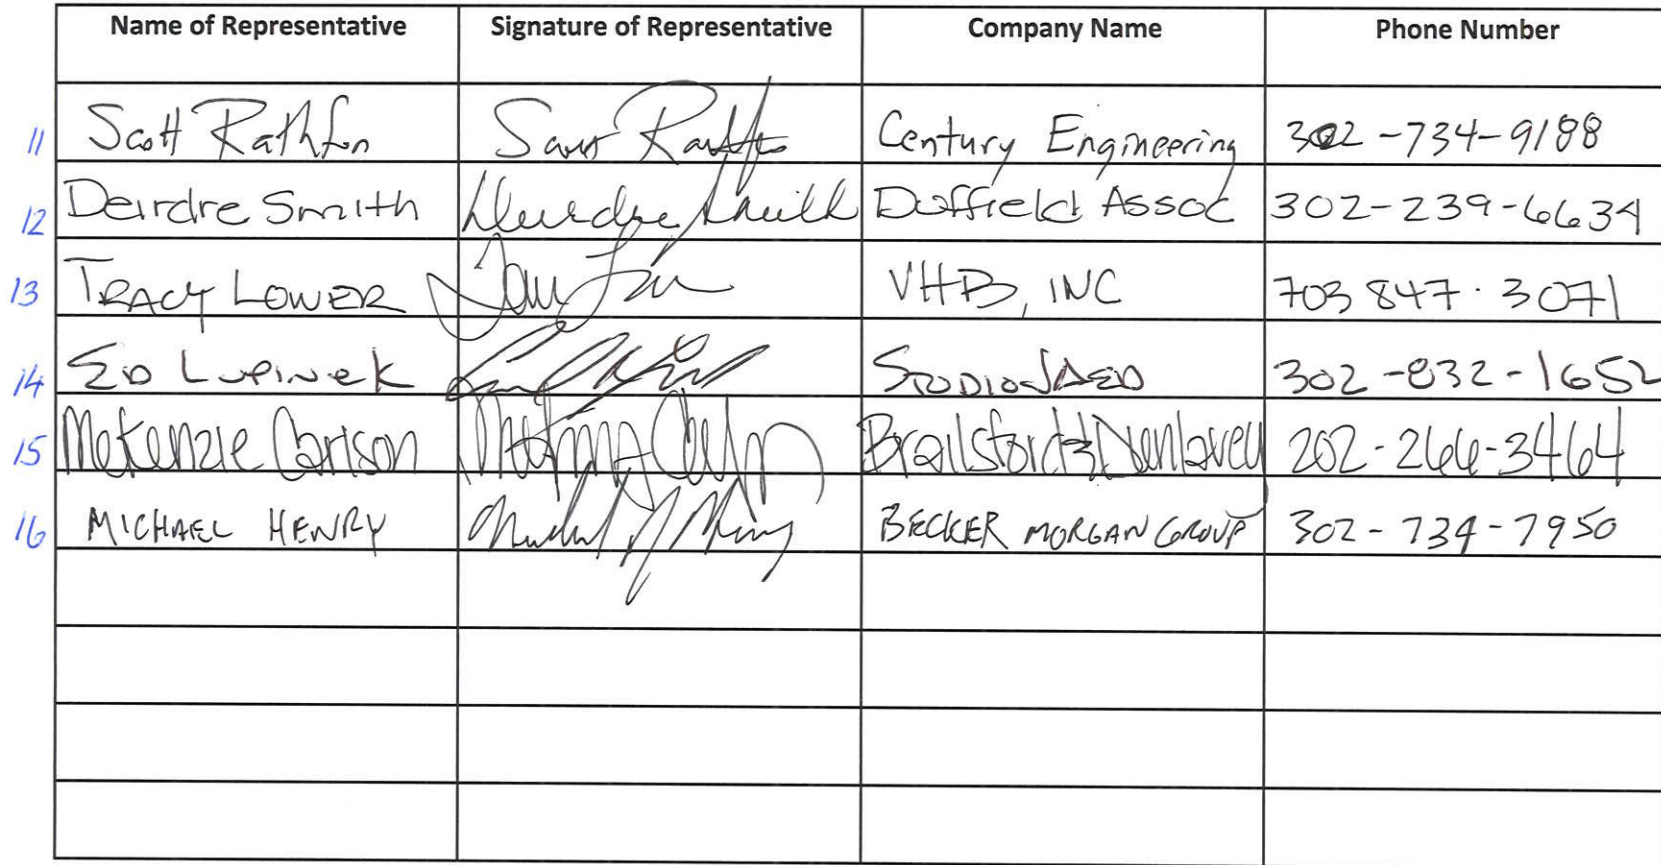 Name of Representative Signature of Representative Company Name Phone Number
11 Scott Rathfon Scott Rathfon Century Engineering 302-734-9188
12 Deirdre Smith Deirdre Smith Duffield Assoc 302-239-6634
13 TRACY LOWER VHB, INC 703 847.3071
14 ED LUPINEK STUDIOJAED 302-832-1652
15 Mekenzie Carlson Brailsford & Dunlavey 202-266-3464
16 MICHAEL HENRY BECKER MORGAN GROUP 302-734-7950